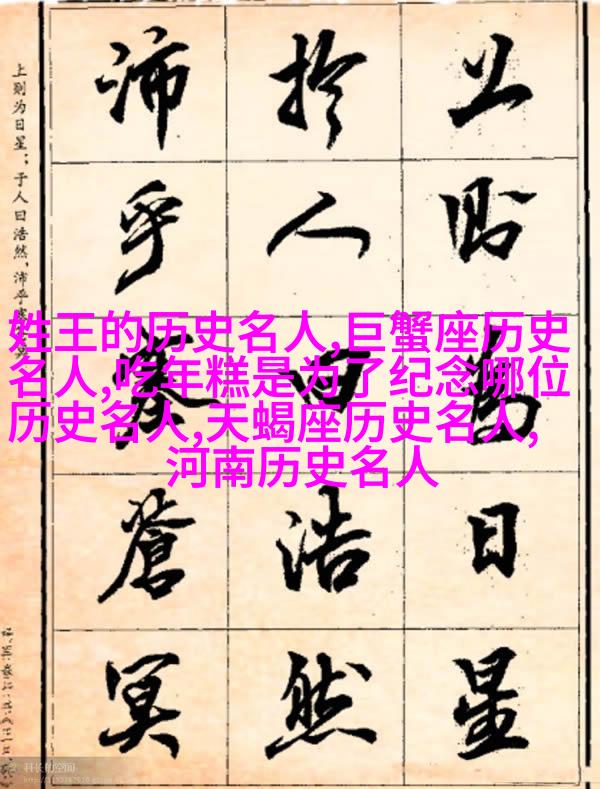 上則為日星
於人曰浩然
沛乎塞蒼冥
上则为日星；于人曰浩然，沛乎
姓王的历史名人,巨蟹座历史
名人,吃年糕是为了纪念哪位
历史名人,天蝎座历史名人,
河南历史名人
科长的空间